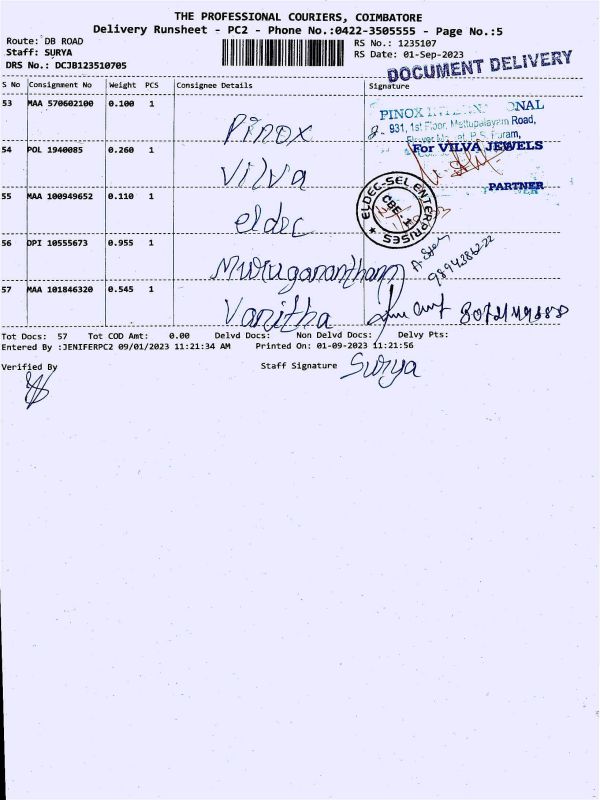 THE PROFESSIONAL COURIERS, COIMBATORE
Delivery Runsheet - PC2 - Phone No.:0422-3505555 - Page No.:5
Route: DB ROAD
RS No.: 1235107
Staff: SURYA
RS Date: 01-Sep-2023
DRS No.: DCJB123510705
DOCUMENT DELIVERY
S No Consignment No Weight PCS Consignee Details Signature
53 MAA 570602100 0.100 1
Pinox
PINOX
931, 1st Floor, Mettupalayam Road,
54 POL 1940085 0.260 1
Vilva
For VILVA JEWELS
PARTNER
55 MAA 100949652 0.110 1
eldec
ELDEC-SEL ENTERPRISES
CBE
56 DPI 10555673 0.955 1
Muruganantham
57 MAA 101846320 0.545 1
Vanitha
Tot Docs: 57 Tot COD Amt: 0.00 Delvd Docs: Non Delvd Docs: Delvy Pts:
Entered By :JENIFERPC2 09/01/2023 11:21:34 AM Printed On: 01-09-2023 11:21:56
Verified By
Staff Signature Surya